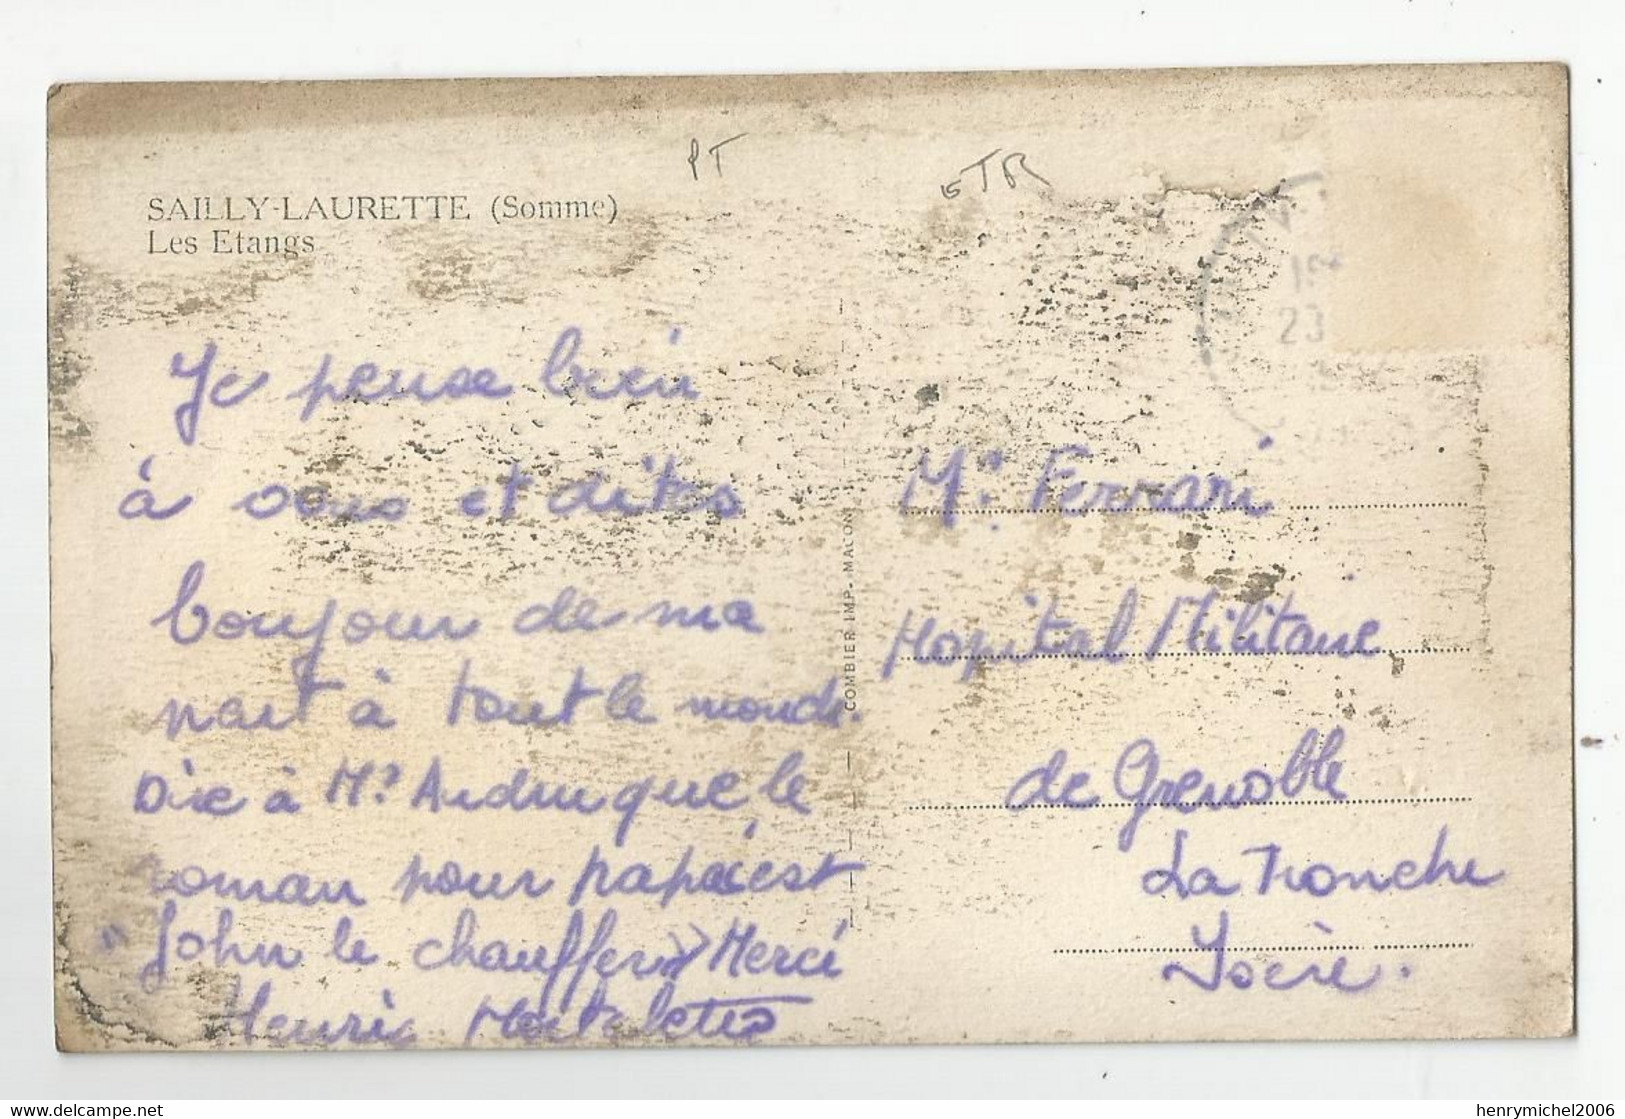 PT
TR
SAILLY-LAURETTE (Somme)
Les Etangs
23
Je pense bien
à vous et dites
bonjour de ma
part à tout le monde.
Dire à Mr que le
roman pour papa c'est
"John le chauffeur» Merci
Henri
COMBIER IMP. MACON
Mr Ferrari
Hopital Militaire
de Grenoble
La Tronche
Isère.
henrymichel2006